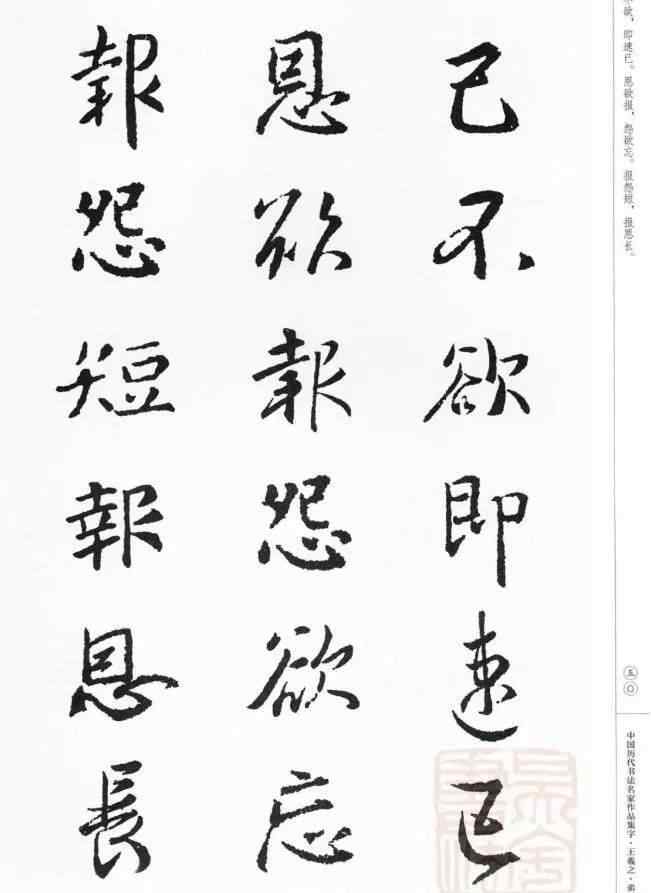 己不欲即速已
恩欲報怨欲忘
報怨短報恩長
欲，即速已。恩欲报，怨欲忘。报怨短，报恩长。
五〇
中国历代书法名家作品集字·王羲之·弟